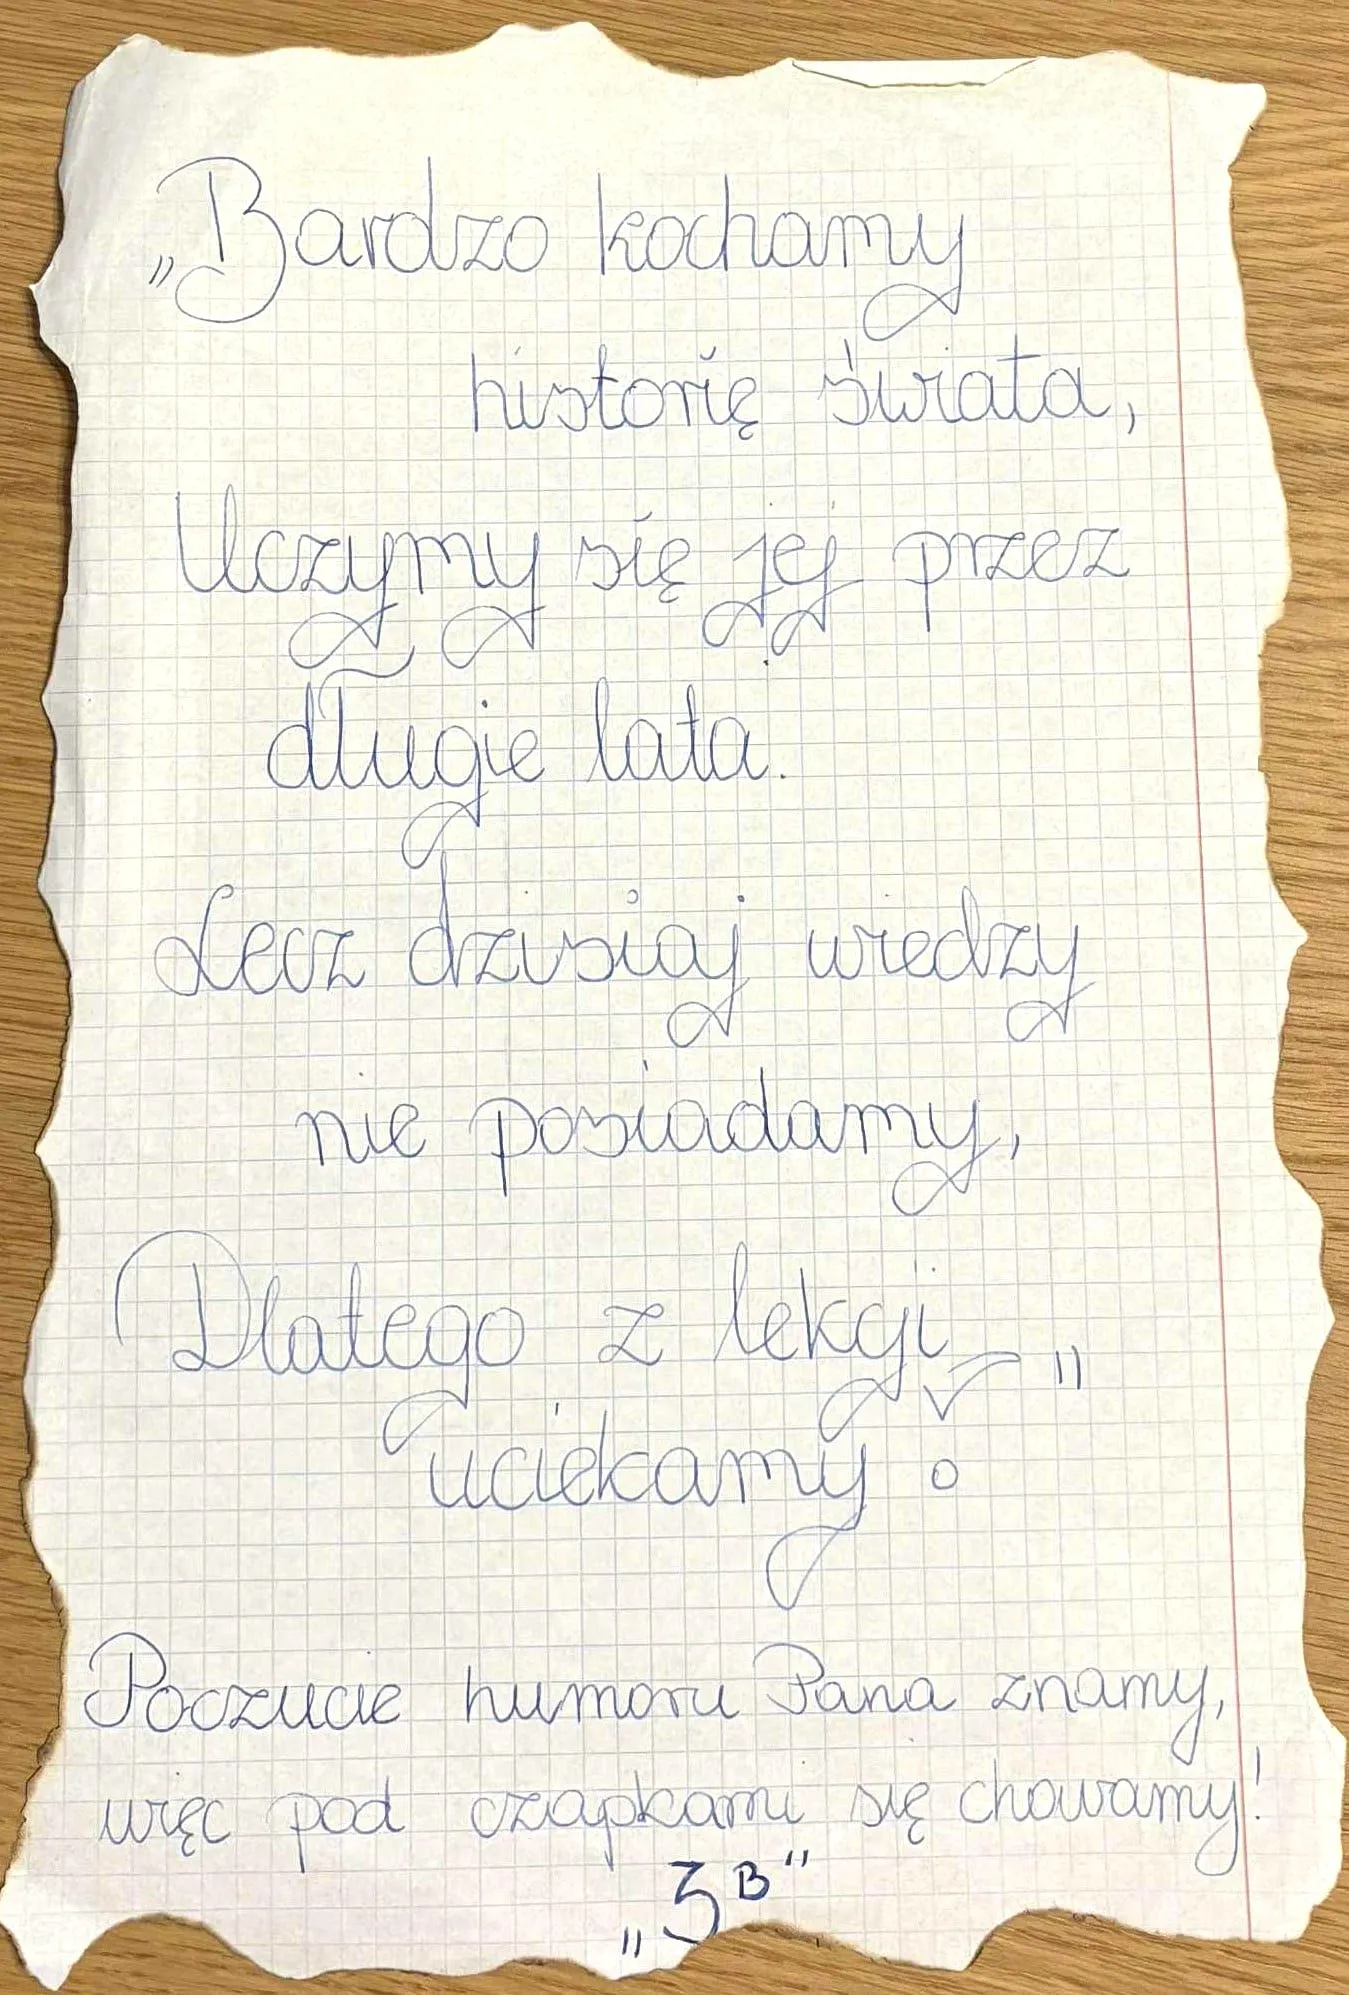 „Bardzo kochamy
historię świata,
Uczymy się jej przez
długie lata.
Lecz dzisiaj wiedzy
nie posiadamy,
Dlatego z lekcji
uciekamy!"
Poczucie humoru Pana znamy,
więc pod czapkami się chowamy!
„3B"